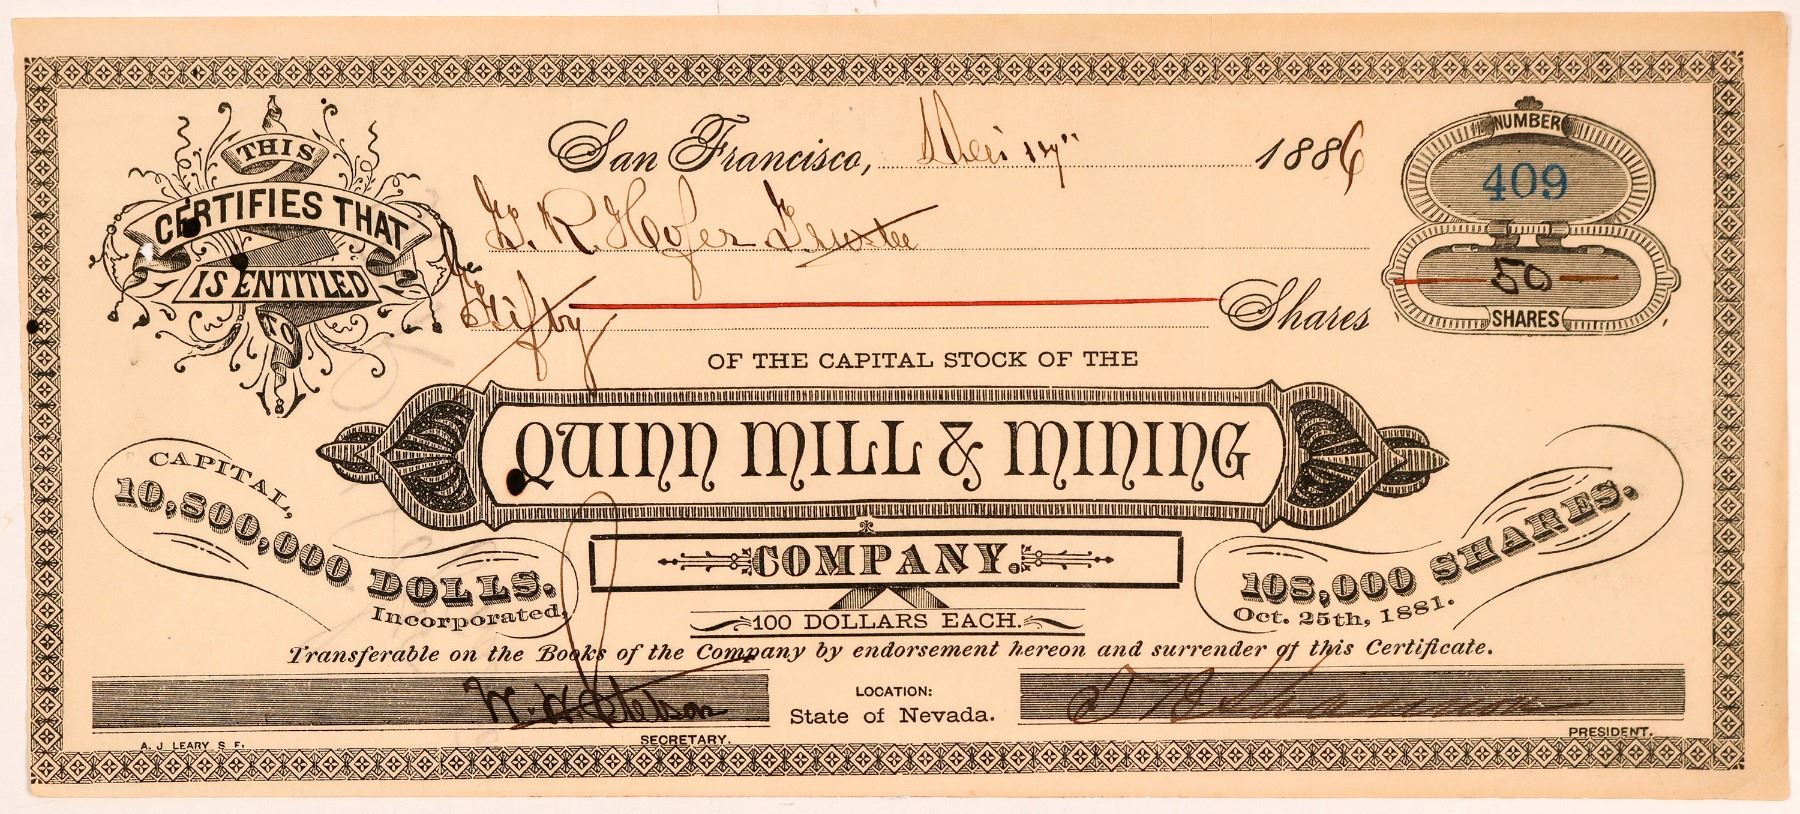 THIS
CERTIFIES THAT
IS ENTITLED
TO
San Francisco, 1886
R. Hofer Trustee
Fifty Shares
NUMBER
409
50
SHARES
OF THE CAPITAL STOCK OF THE
QUINN MILL & MINING
COMPANY.
100 DOLLARS EACH.
CAPITAL,
10,800,000 DOLLS.
Incorporated,
108,000 SHARES.
Oct. 25th, 1881.
Transferable on the Books of the Company by endorsement hereon and surrender of this Certificate.
LOCATION:
State of Nevada.
SECRETARY.
PRESIDENT.
A. J LEARY S F.